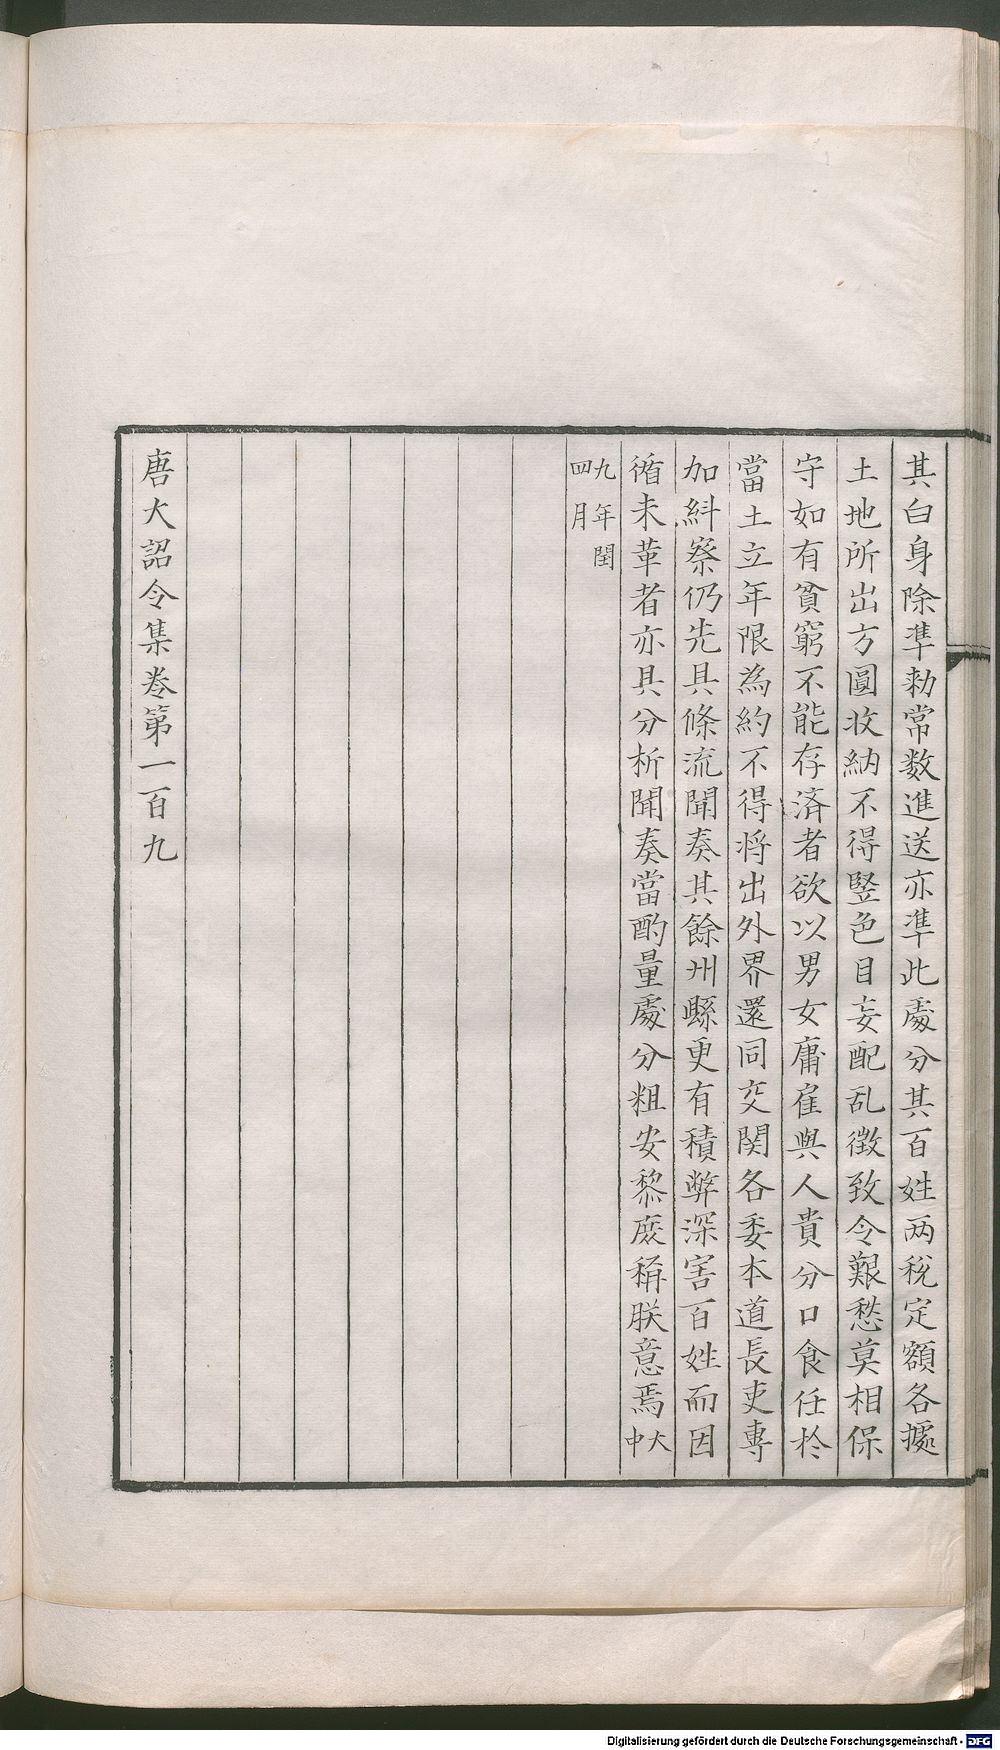 其白身除準勑常数進送亦準此處分其百姓两税定額各據
土地所出方圓收納不得竪色目妄配乱徴致令艱愁莫相保
守如有貧窮不能存済者欲以男女庸雇與人貴分口食任於
當土立年限為約不得将出外界還同交関各委本道長吏專
加糾察仍先具條流聞奏其餘州縣更有積弊深害百姓而因
循未革者亦具分析聞奏當酌量處分粗安黎庶稱朕意焉大中
九年閏四月
唐大詔令集卷第一百九
Digitalisierung gefördert durch die Deutsche Forschungsgemeinschaft - DFG